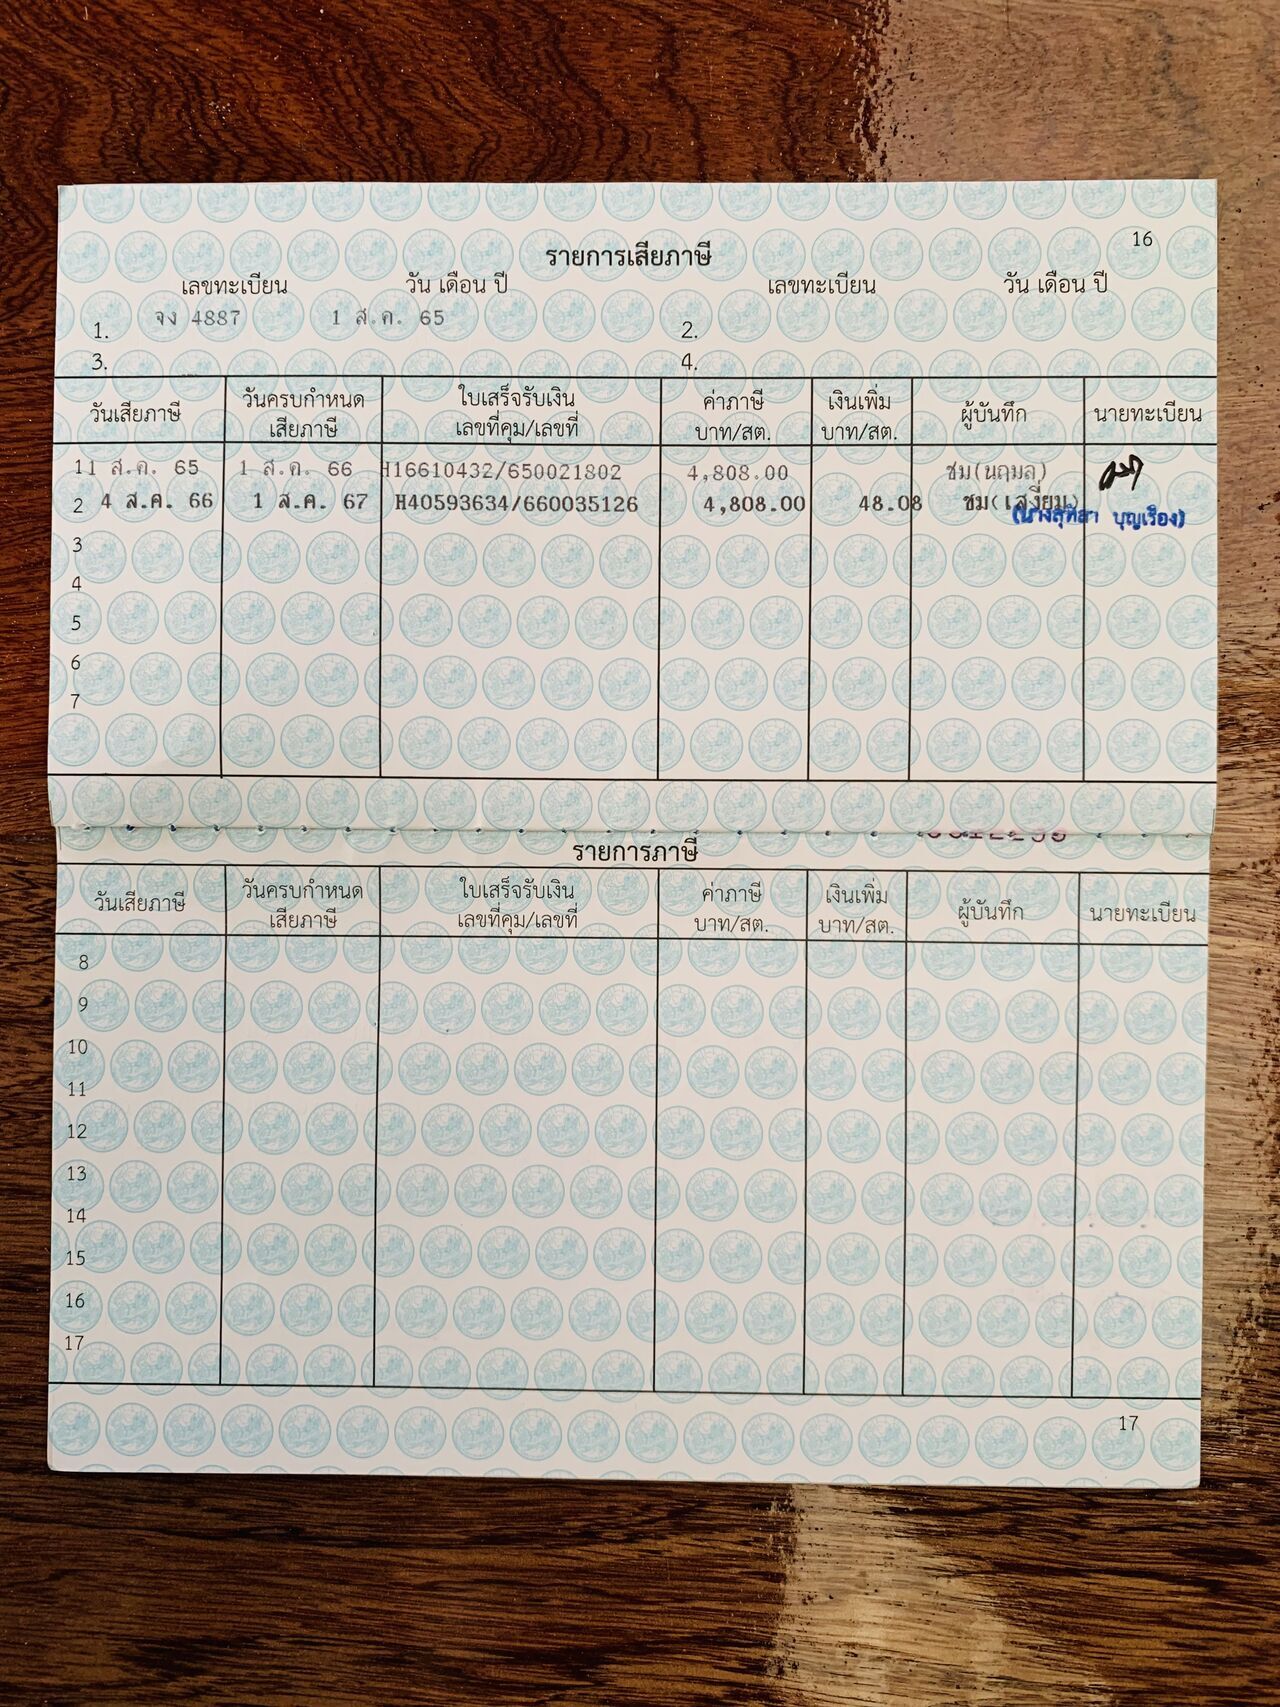 16
รายการเสียภาษี
เลขทะเบียน วัน เดือน ปี เลขทะเบียน วัน เดือน ปี
1. จง 4887 1 ส.ค. 65 2.
3. 4.
วันเสียภาษี วันครบกำหนด เสียภาษี ใบเสร็จรับเงิน เลขที่คุม/เลขที่ ค่าภาษี บาท/สต. เงินเพิ่ม บาท/สต. ผู้บันทึก นายทะเบียน
1 1 ส.ค. 65 1 ส.ค. 66 H16610432/650021802 4,808.00 ชม(นฤมล)
2 4 ส.ค. 66 1 ส.ค. 67 H40593634/660035126 4,808.00 48.08 ชม(เสงี่ยม)
(นางสุทิสา บุญเรือง)
3
4
5
6
7
รายการภาษี
วันเสียภาษี วันครบกำหนด เสียภาษี ใบเสร็จรับเงิน เลขที่คุม/เลขที่ ค่าภาษี บาท/สต. เงินเพิ่ม บาท/สต. ผู้บันทึก นายทะเบียน
8
9
10
11
12
13
14
15
16
17
17